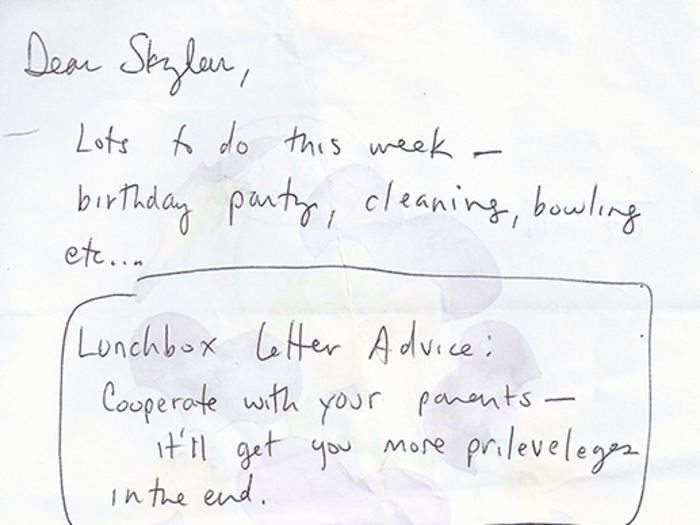 Dear Skyler,
Lots to do this week —
birthday party, cleaning, bowling
etc....
Lunchbox Letter Advice:
Cooperate with your parents —
it'll get you more prileveleges
in the end.